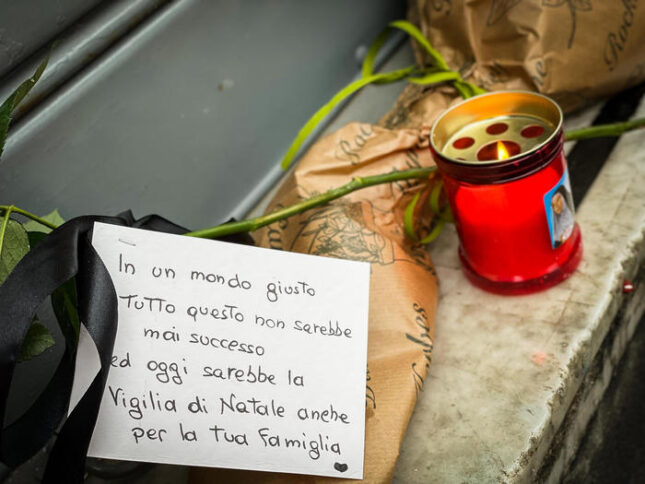 In un mondo giusto
Tutto questo non sarebbe
mai successo
ed oggi sarebbe la
Vigilia di Natale anche
per la Tua Famiglia